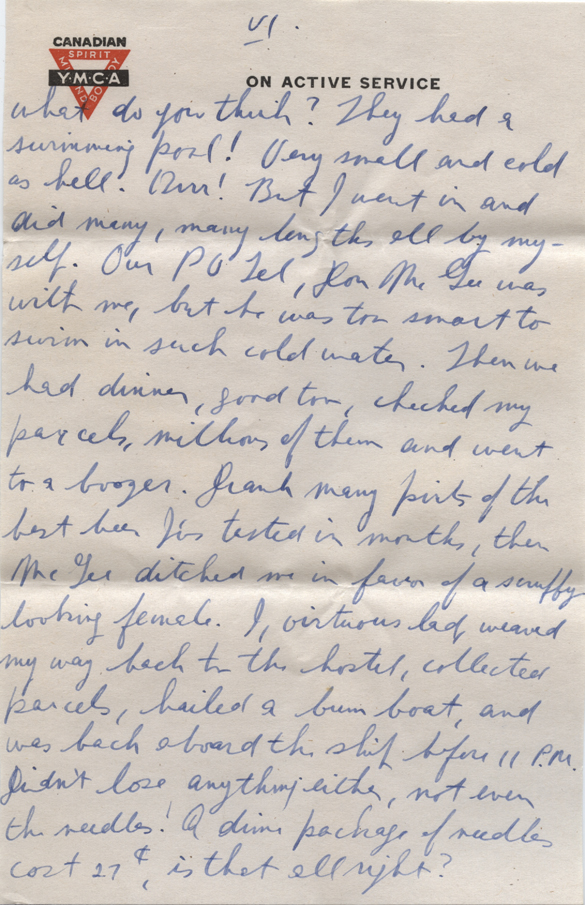 VI.
CANADIAN
SPIRIT
Y·M·C·A
MIND BODY
ON ACTIVE SERVICE
what do you think? They had a
swimming pool! Very small and cold
as hell. Brrr! But I went in and
did many, many lengths all by my-
self. Our PO Tel, Don McGee was
with me, but he was too smart to
swim in such cold water. Then we
had dinner, good too, checked my
parcels, millions of them and went
to a boozer. Drank many pints of the
best beer I've tasted in months, then
McGee ditched me in favor of a scruffy
looking female. I, virtuous lad, weaved
my way back to the hostel, collected
parcels, hailed a bum boat, and
was back aboard the ship before 11 P.M.
Didn't lose anything either, not even
the needles! A dime package of needles
cost 27¢, is that all right?